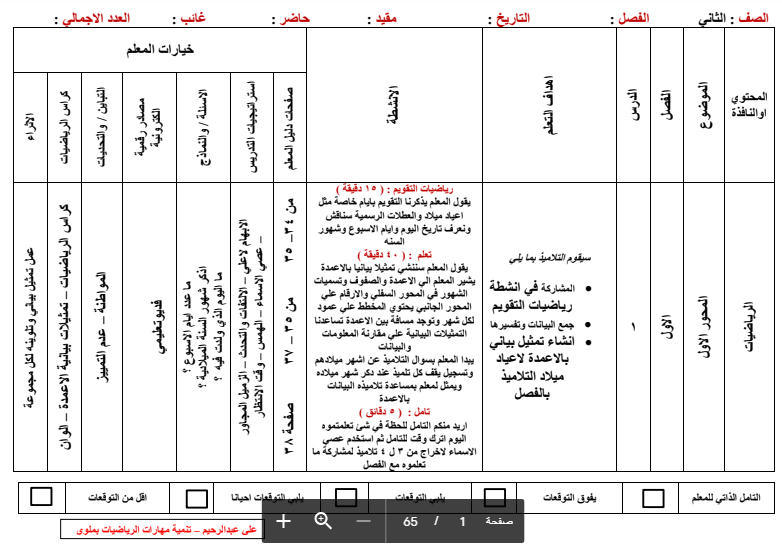 الصف : الثاني الفصل : التاريخ : مقيد : حاضر : غائب : العدد الاجمالي :
المحتوي اوالنافذة
الموضوع
الفصل
الدرس
اهداف التعلم
الانشطة
خيارات المعلم
صفحات دليل المعلم
استراتيجيات التدريس
الاسئلة / والنماذج
مصادر رقمية الكترونية
التباين / والتحديات
كراس الرياضيات
الاثراء
الرياضيات
المحور الاول
الاول
سيقوم التلاميذ بما يلي
المشاركة في انشطة
رياضيات التقويم
جمع البيانات وتفسيرها
انشاء تمثيل بياني
بالاعمدة لاعياد
ميلاد التلاميذ
بالفصل
رياضيات التقويم : ( ١٥ دقيقة )
يقول المعلم يذكرنا التقويم بايام خاصة مثل
اعياد ميلاد والعطلات الرسمية سناقش
ونعرف تاريخ اليوم وايام الاسبوع وشهور
السنه
تعلم : ( ٤٠ دقيقة )
يقول المعلم سننشي تمثيلا بيانيا بالاعمدة
يشير المعلم الي الاعمدة والصفوف وتسميات
الشهور في المحور السفلي والارقام علي
المحور الجانبي يحتوي المخطط علي عمود
لكل شهر وتوجد مسافة بين الاعمدة تساعدنا
التمثيلات البيانية علي مقارنة المعلومات
والبيانات
يبدا المعلم بسوال التلاميذ عن اشهر ميلادهم
وتسجيل يقف كل تلميذ عند ذكر شهر ميلاده
ويمثل لمعلم بمساعدة تلاميذه البيانات
بالاعمدة
تامل : ( ٥ دقائق )
اريد منكم التامل للحظة في شئ تعلمتموه
اليوم اترك وقت للتامل ثم استخدم عصي
الاسماء لاخراج من ٣ ل ٤ تلاميذ لمشاركة ما
تعلموه مع الفصل
من ٣٤ – ٣٥ من ٣٥ – ٣٧ صفحة ٣٨
الابهام لاعلي – الالتفات والتحدث – الزميل المجاور
– عصي الاسماء – الهمس – وقت الانتظار
ما عدد ايام الاسبوع ؟
اذكر شهور السنة الميلادية ؟
ما اليوم الذي ولدت فيه ؟
فديوتعليمي
المواطنة – عدم التمييز
كراس الرياضيات – تمثيلات بيانية الاعمدة – الوان
عمل تمثيل بياني وتلوينه لكل مجموعة
التامل الذاتي للمعلم
يفوق التوقعات
يلبي التوقعات
يلبي التوقعات احيانا
اقل من التوقعات
صفحة 1 / 65
علي عبدالرحيم – تنمية مهارات الرياضيات بملوي